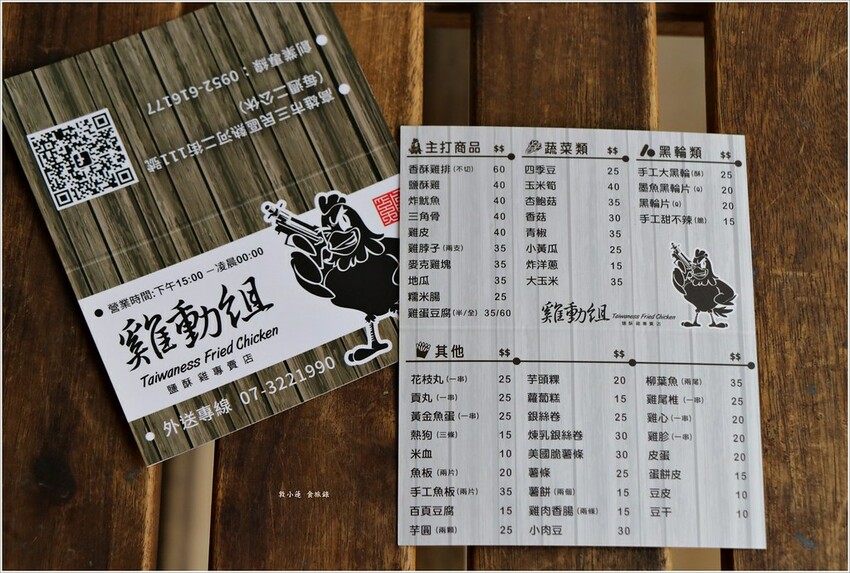 創業專線：0952-616177
(每週二公休)
高雄市三民區熱河二街111號
營業時間:下午15:00－凌晨00:00
雞動組
Taiwaness Fried Chicken
鹽酥雞專賣店
外送專線 07-3221990
主打商品 $$
香酥雞排(不切) 60
鹽酥雞 40
炸魷魚 40
三角骨 40
雞皮 40
雞脖子(兩支) 35
麥克雞塊 35
地瓜 35
糯米腸 25
雞蛋豆腐(半/全) 35/60
蔬菜類 $$
四季豆 25
玉米筍 40
杏鮑菇 35
香菇 30
青椒 35
小黃瓜 25
炸洋蔥 15
大玉米 35
黑輪類 $$
手工大黑輪(酥) 25
墨魚黑輪片(Q) 20
黑輪片(Q) 20
手工甜不辣(脆) 15
雞動組
Taiwaness Fried Chicken
鹽酥雞專賣店
其他 $$
花枝丸(一串) 25
貢丸(一串) 25
黃金魚蛋(一串) 25
熱狗(三條) 15
米血 10
魚板(兩片) 20
手工魚板(兩片) 35
百頁豆腐 15
芋圓(兩顆) 25
$$
芋頭粿 20
蘿蔔糕 15
銀絲卷 25
煉乳銀絲卷 30
美國脆薯條 30
薯條 25
薯餅(兩個) 15
雞肉香腸(兩條) 15
小肉豆 30
$$
柳葉魚(兩尾) 35
雞尾椎(一串) 25
雞心(一串) 20
雞胗(一串) 20
皮蛋 20
蛋餅皮 15
豆皮 10
豆干 10
敦小蓮 食旅錄